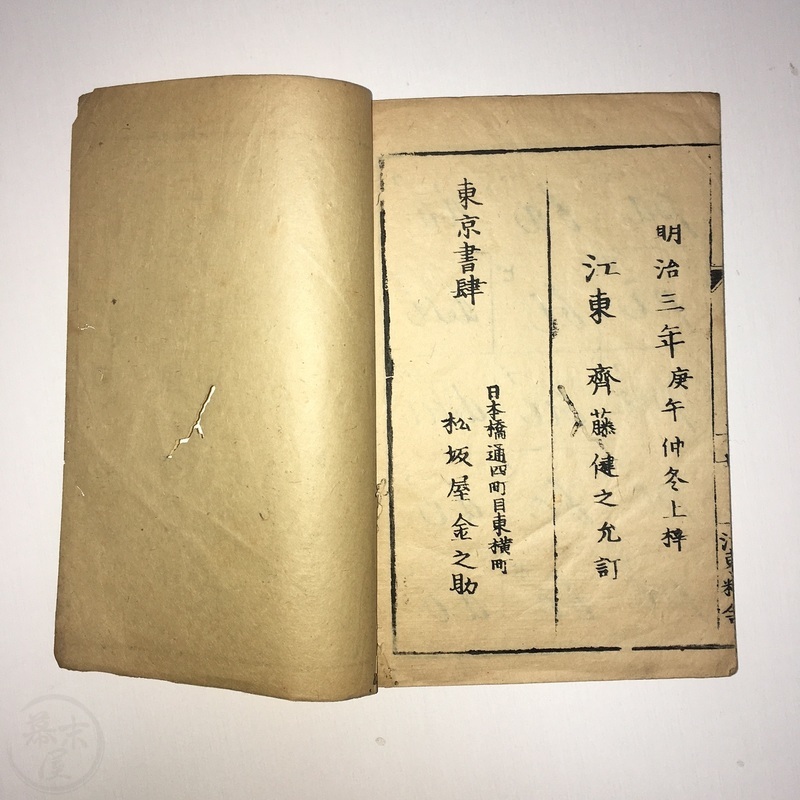 明治三年庚午仲冬上梓
江東 齊藤健之允訂
東京書肆
日本橋通四町目東横町
松坂屋金之助
幕末屋